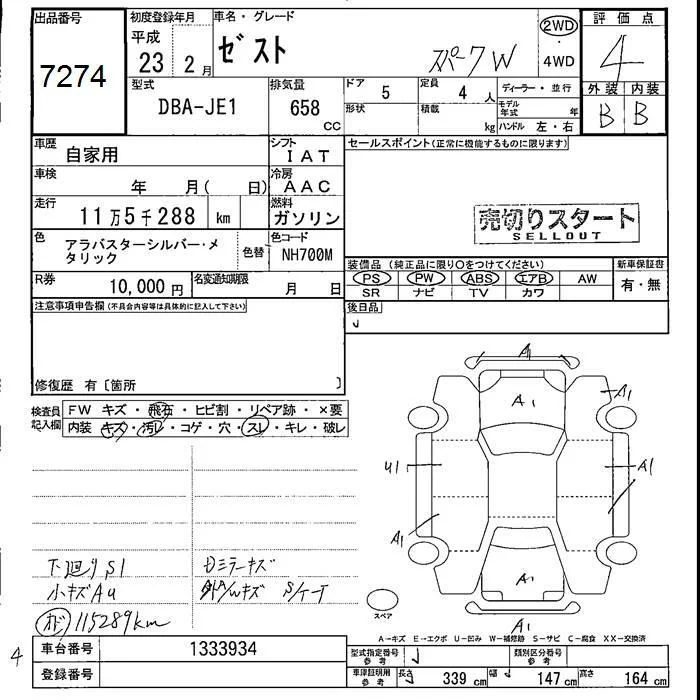 出品番号
7274
初度登録年月
平成
23 2月
車名・グレード
ゼスト
スパークW
2WD
4WD
評価点
4
外装 内装
B B
型式
DBA-JE1
排気量
658
CC
ドア
5
定員
4 人
形状
積載
kg
ディーラー・並行
モデル年式 年
ハンドル 左・右
車歴
自家用
シフト
IAT
車検
年 月( 日)
冷房
AAC
走行
11万5千288 km
燃料
ガソリン
色
アラバスターシルバー・メタリック
色替
色コード
NH700M
R券
10,000円
名変通知期限
月 日
セールスポイント(正常に機能するものに限ります)
売切りスタート
SELLOUT
装備品(純正品に限り○をつけてください)
PS PW ABS エアB AW
SR ナビ TV カワ
新車保証書
有・無
注意事項申告欄(不具合内容等は具体的に記入して下さい)
修復歴 有〔箇所 〕
後日品
検査員記入欄
FW キズ・飛石・ヒビ割・リペア跡・×要
内装 キズ・汚レ・コゲ・穴・スレ・キレ・破レ
A1
A1
A1
U1
A1
A1
A1
A1
スペア
下廻りS1
小キズAU
オド 115289km
Dミラーキズ
A→キズ E→エクボ U→凹み W→補修跡 S→サビ C→腐食 XX→交換済
4
車台番号
1333934
登録番号
型式指定番号
参考
類別区分番号
参考
車庫証明用
参考
長さ
339 cm
幅
147 cm
高さ
164 cm